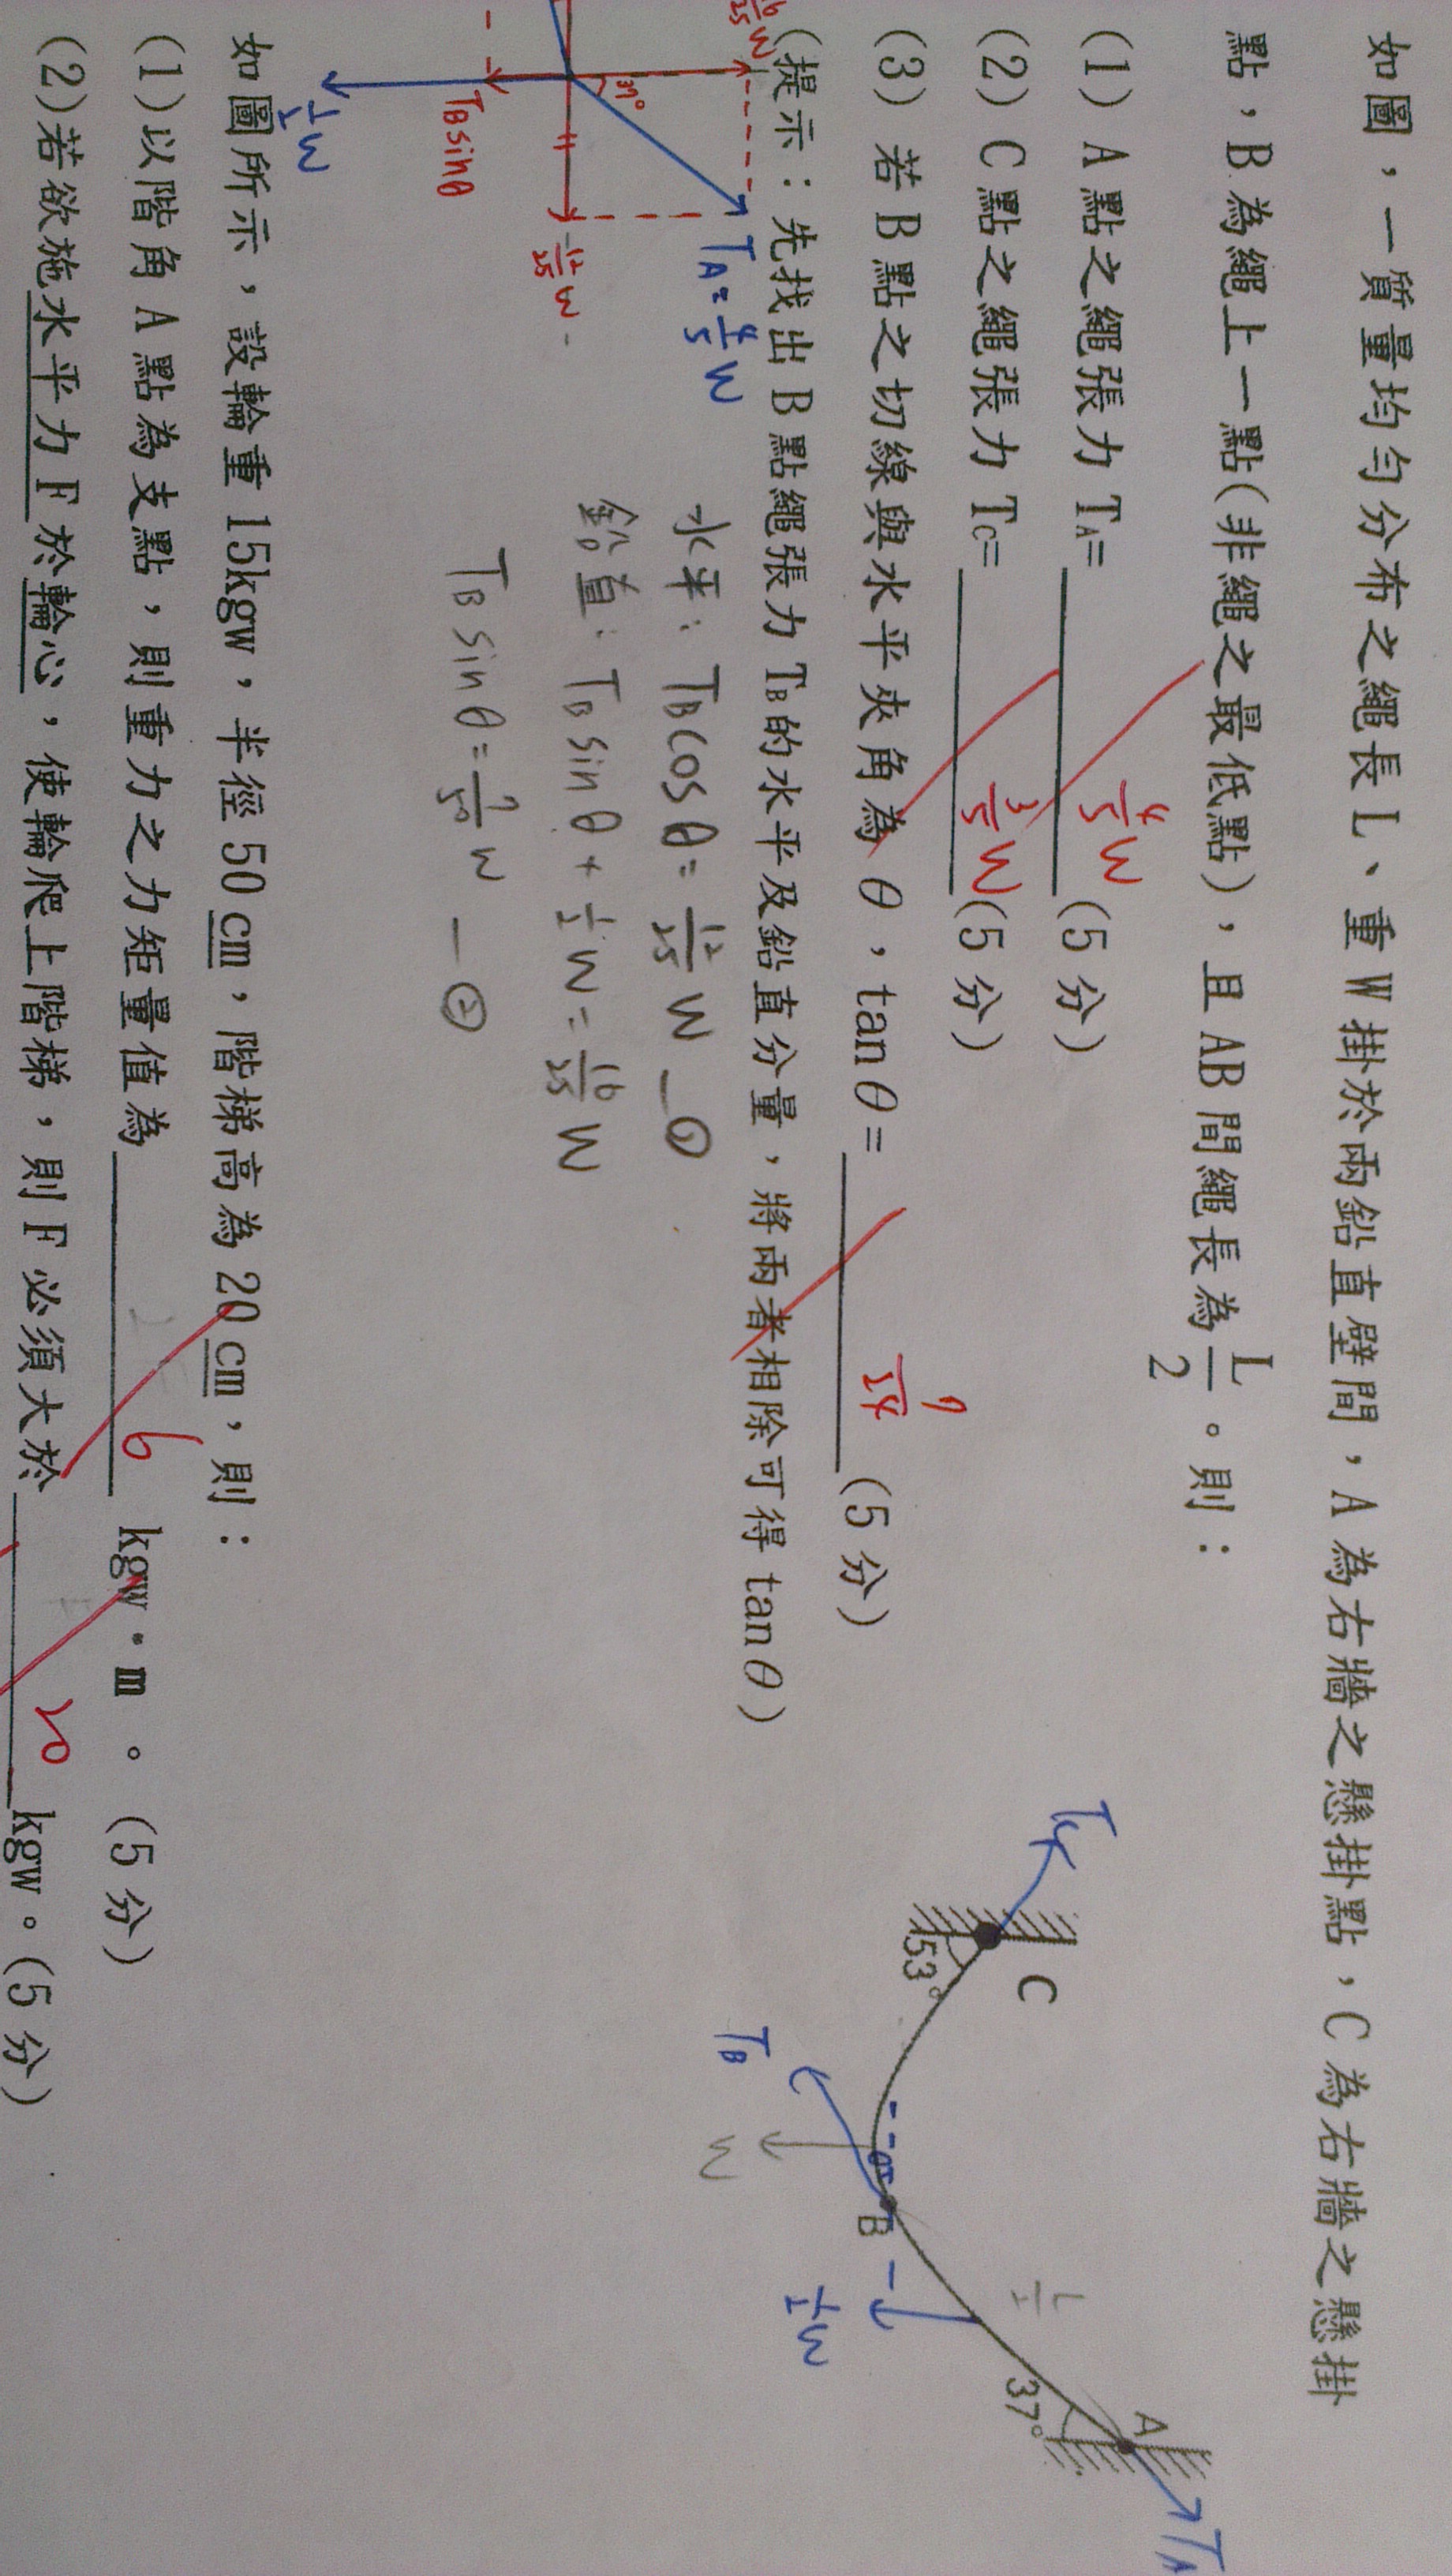 如圖，一質量均勻分布之繩長L、重W掛於兩鉛直壁間，A為右牆之懸掛點，C為右牆之懸掛
點，B為繩上一點(非繩之最低點)，且AB間繩長為 L/2 。則：
(1) A點之繩張力 TA= 4/5 W (5分)
(2) C點之繩張力 TC= 3/5 W (5分)
(3) 若B點之切線與水平夾角為θ，tanθ= 7/24 (5分)
(提示：先找出B點繩張力TB的水平及鉛直分量，將兩者相除可得tanθ)
16/25 W
37°
TA=4/5 W
12/25 W
TB sinθ
1/2 W
水平：TB cosθ=12/25 W —①
鉛直：TB sinθ+1/2 W=16/25 W
TB sinθ=7/50 W —②
TC
C
53°
TB
W
θ
B
1/2 W
L/2
37°
A
TA
如圖所示，設輪重15kgw，半徑50cm，階梯高為20cm，則：
(1)以階角A點為支點，則重力之力矩量值為 6 kgw·m 。(5分)
(2)若欲施水平力F於輪心，使輪爬上階梯，則F必須大於 20 kgw。(5分)